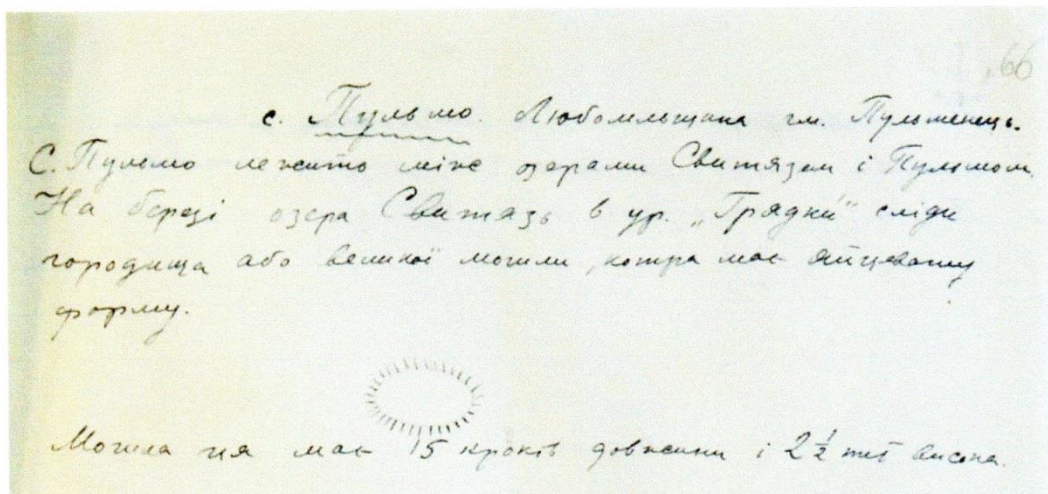 66
с. Пульмо. Любомльщина гм. Пульменець.
С. Пульмо лежить між озерами Свитязем і Пульмом.
На березі озера Свитязь в ур. „Грядки" сліди
городища або великої могили, котра має яйцевату
форму.
Могила ця має 15 кроків довжини і 2 ½ висока.